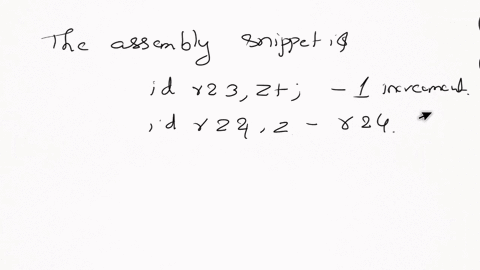 The assembly snippet is
id r23, Z+; - 1 increment.
id r24, z - r24.